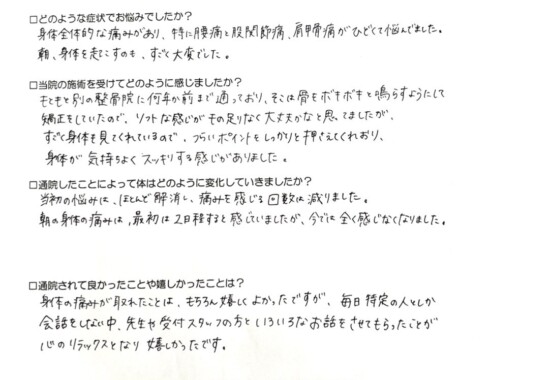 □どのような症状でお悩みでしたか？
身体全体的な痛みがあり、特に腰痛と股関節痛、肩甲骨痛がひどくて悩んでました。
朝、身体を起こすのも、すごく大変でした。
□当院の施術を受けてどのように感じましたか？
もともと別の整骨院に何年か前まで通っており、そこは骨をボキボキと鳴らすようにして
矯正をしていたので、ソフトな感じがその足りなく大丈夫かなと思ってましたが、
すごく身体を見てくれているので、つらいポイントをしっかりと押さえてくれおり、
身体が気持ちよくスッキリする感じがありました。
□通院したことによって体はどのように変化していきましたか？
当初の悩みは、ほとんど解消し、痛みを感じる回数は減りました。
朝の身体の痛みは、最初は2日程すると感じていましたが、今では全く感じなくなりました。
□通院されて良かったことや嬉しかったことは？
身体の痛みが取れたことは、もちろん嬉しくよかったですが、毎日特定の人としか
会話をしない中、先生や受付スタッフの方といろいろなお話をさせてもらったことが
心のリラックスとなり嬉しかったです。